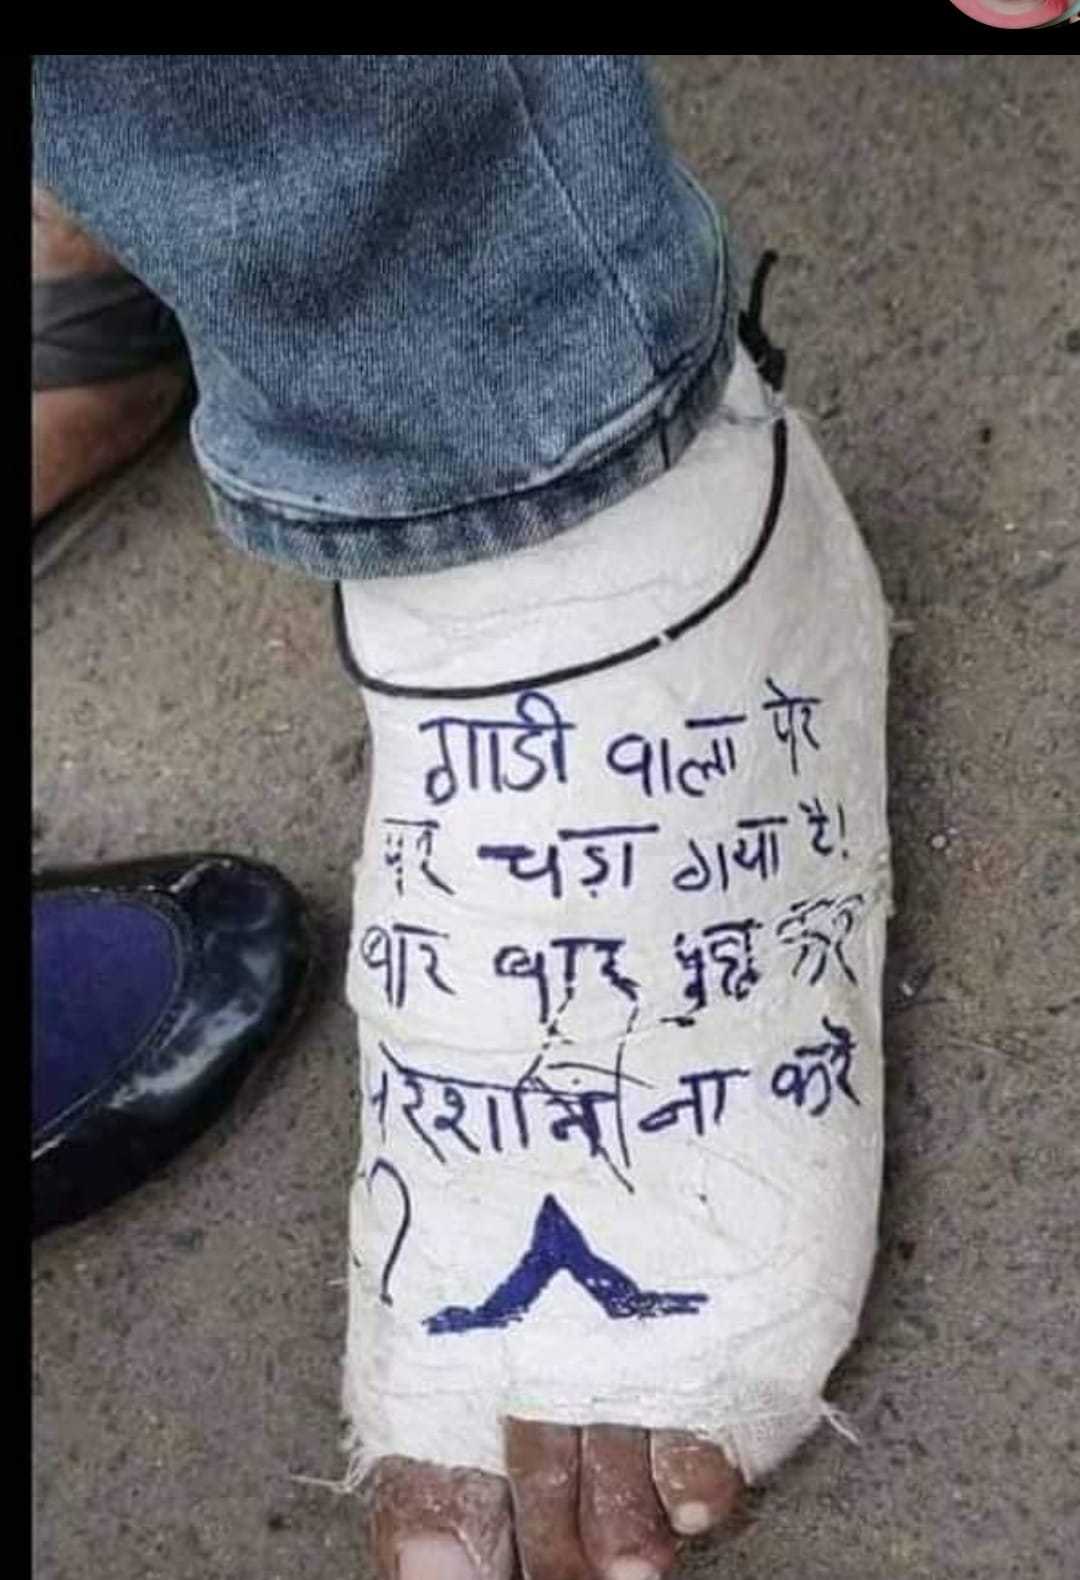 गाडी वाला पेर
पर चड़ा गया है!
बार बार पुछ कर
परेशानी ना करे